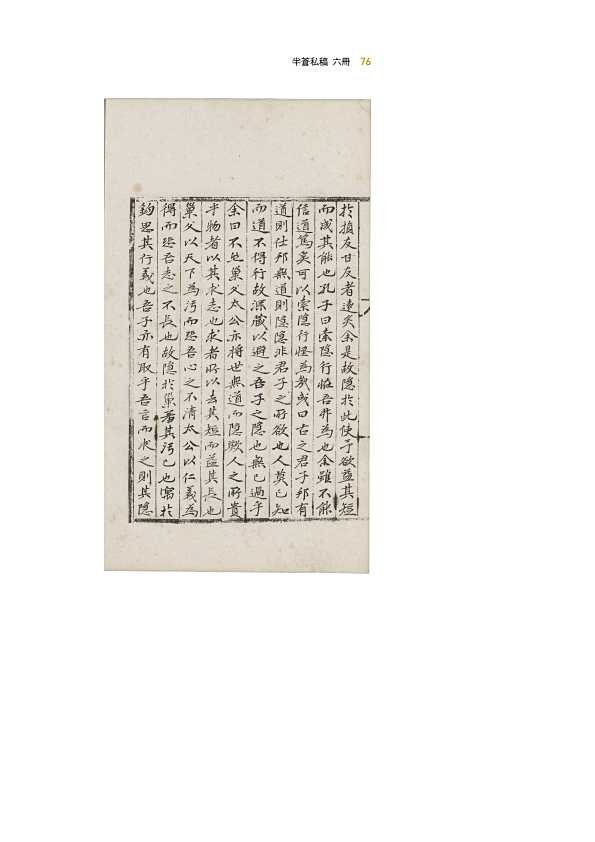 半蒼私稿 六冊 76
於損友甘友者遠矣余是故隱於此使予欲益其短
而成其能也孔子曰索隱行恠吾弗為也余雖不能
信道篤矣可以索隱行怪為哉或曰古之君子邦有
道則仕邦無道則隱隱非君子之所欲也人莫已知
而道不得行故深藏以避之吾子之隱也無已過乎
余曰不然巢父太公亦將世無道而隱歟人之所貴
乎物者以其求志也求者所以去其短而益其長也
巢父以天下為汚而恐吾心之不清太公以仁義為
得而恐吾志之不長也故隱於巢者其汚已也審於
鈎思其行義也吾子亦有取乎吾言而求之則其隱